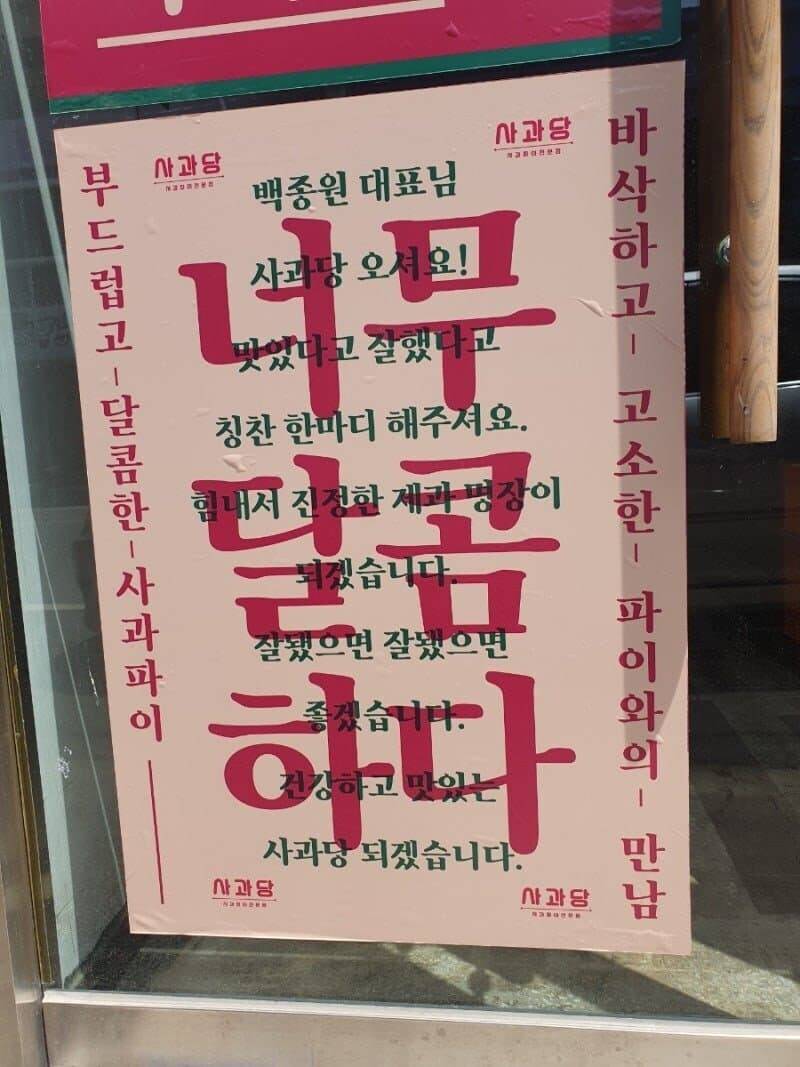 사과당
사과파이전문점
사과당
사과파이전문점
백종원 대표님
사과당 오셔요!
맛있다고 잘했다고
칭찬 한마디 해주셔요.
힘내서 진정한 제과 명장이
되겠습니다.
잘됐으면 잘됐으면
좋겠습니다.
건강하고 맛있는
사과당 되겠습니다.
너무
달콤
하다
부드럽고-달콤한-사과파이
바삭하고- 고소한- 파이와의- 만남
사과당
사과파이전문점
사과당
사과파이전문점